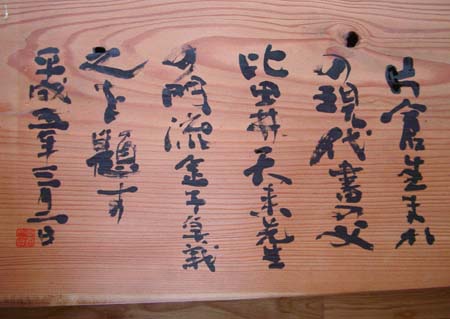 片倉生まれ
の現代書の父
比田井天来先生
の門流金子卓義
之を題す
平成五年三月一日